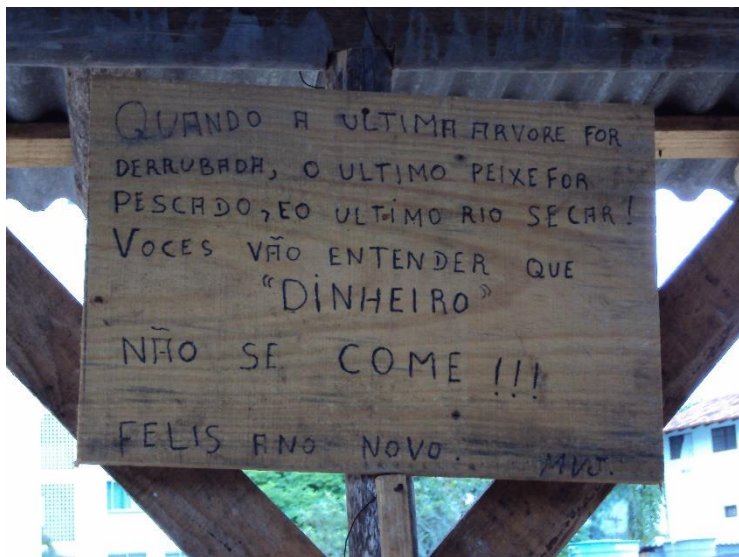 QUANDO A ULTIMA ARVORE FOR
DERRUBADA, O ULTIMO PEIXE FOR
PESCADO, E O ULTIMO RIO SECAR!
VOCES VÃO ENTENDER QUE
"DINHEIRO"
NÃO SE COME !!!
FELIS ANO NOVO. MVJ.